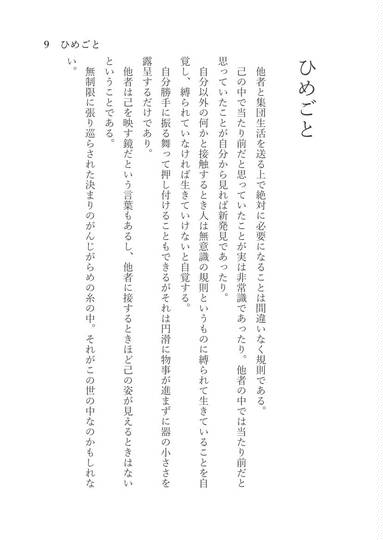 9　ひめごと
ひめごと
他者と集団生活を送る上で絶対に必要になることは間違いなく規則である。
己の中で当たり前だと思っていたことが実は非常識であったり。他者の中では当たり前だと
思っていたことが自分から見れば新発見であったり。
自分以外の何かと接触するとき人は無意識の規則というものに縛られて生きていることを自
覚し、縛られていなければ生きていけないと自覚する。
自分勝手に振る舞って押し付けることもできるがそれは円滑に物事が進まずに器の小ささを
露呈するだけであり。
他者は己を映す鏡だという言葉もあるし、他者に接するときほど己の姿が見えるときはない
ということである。
無制限に張り巡らされた決まりのがんじがらめの糸の中。それがこの世の中なのかもしれな
い。